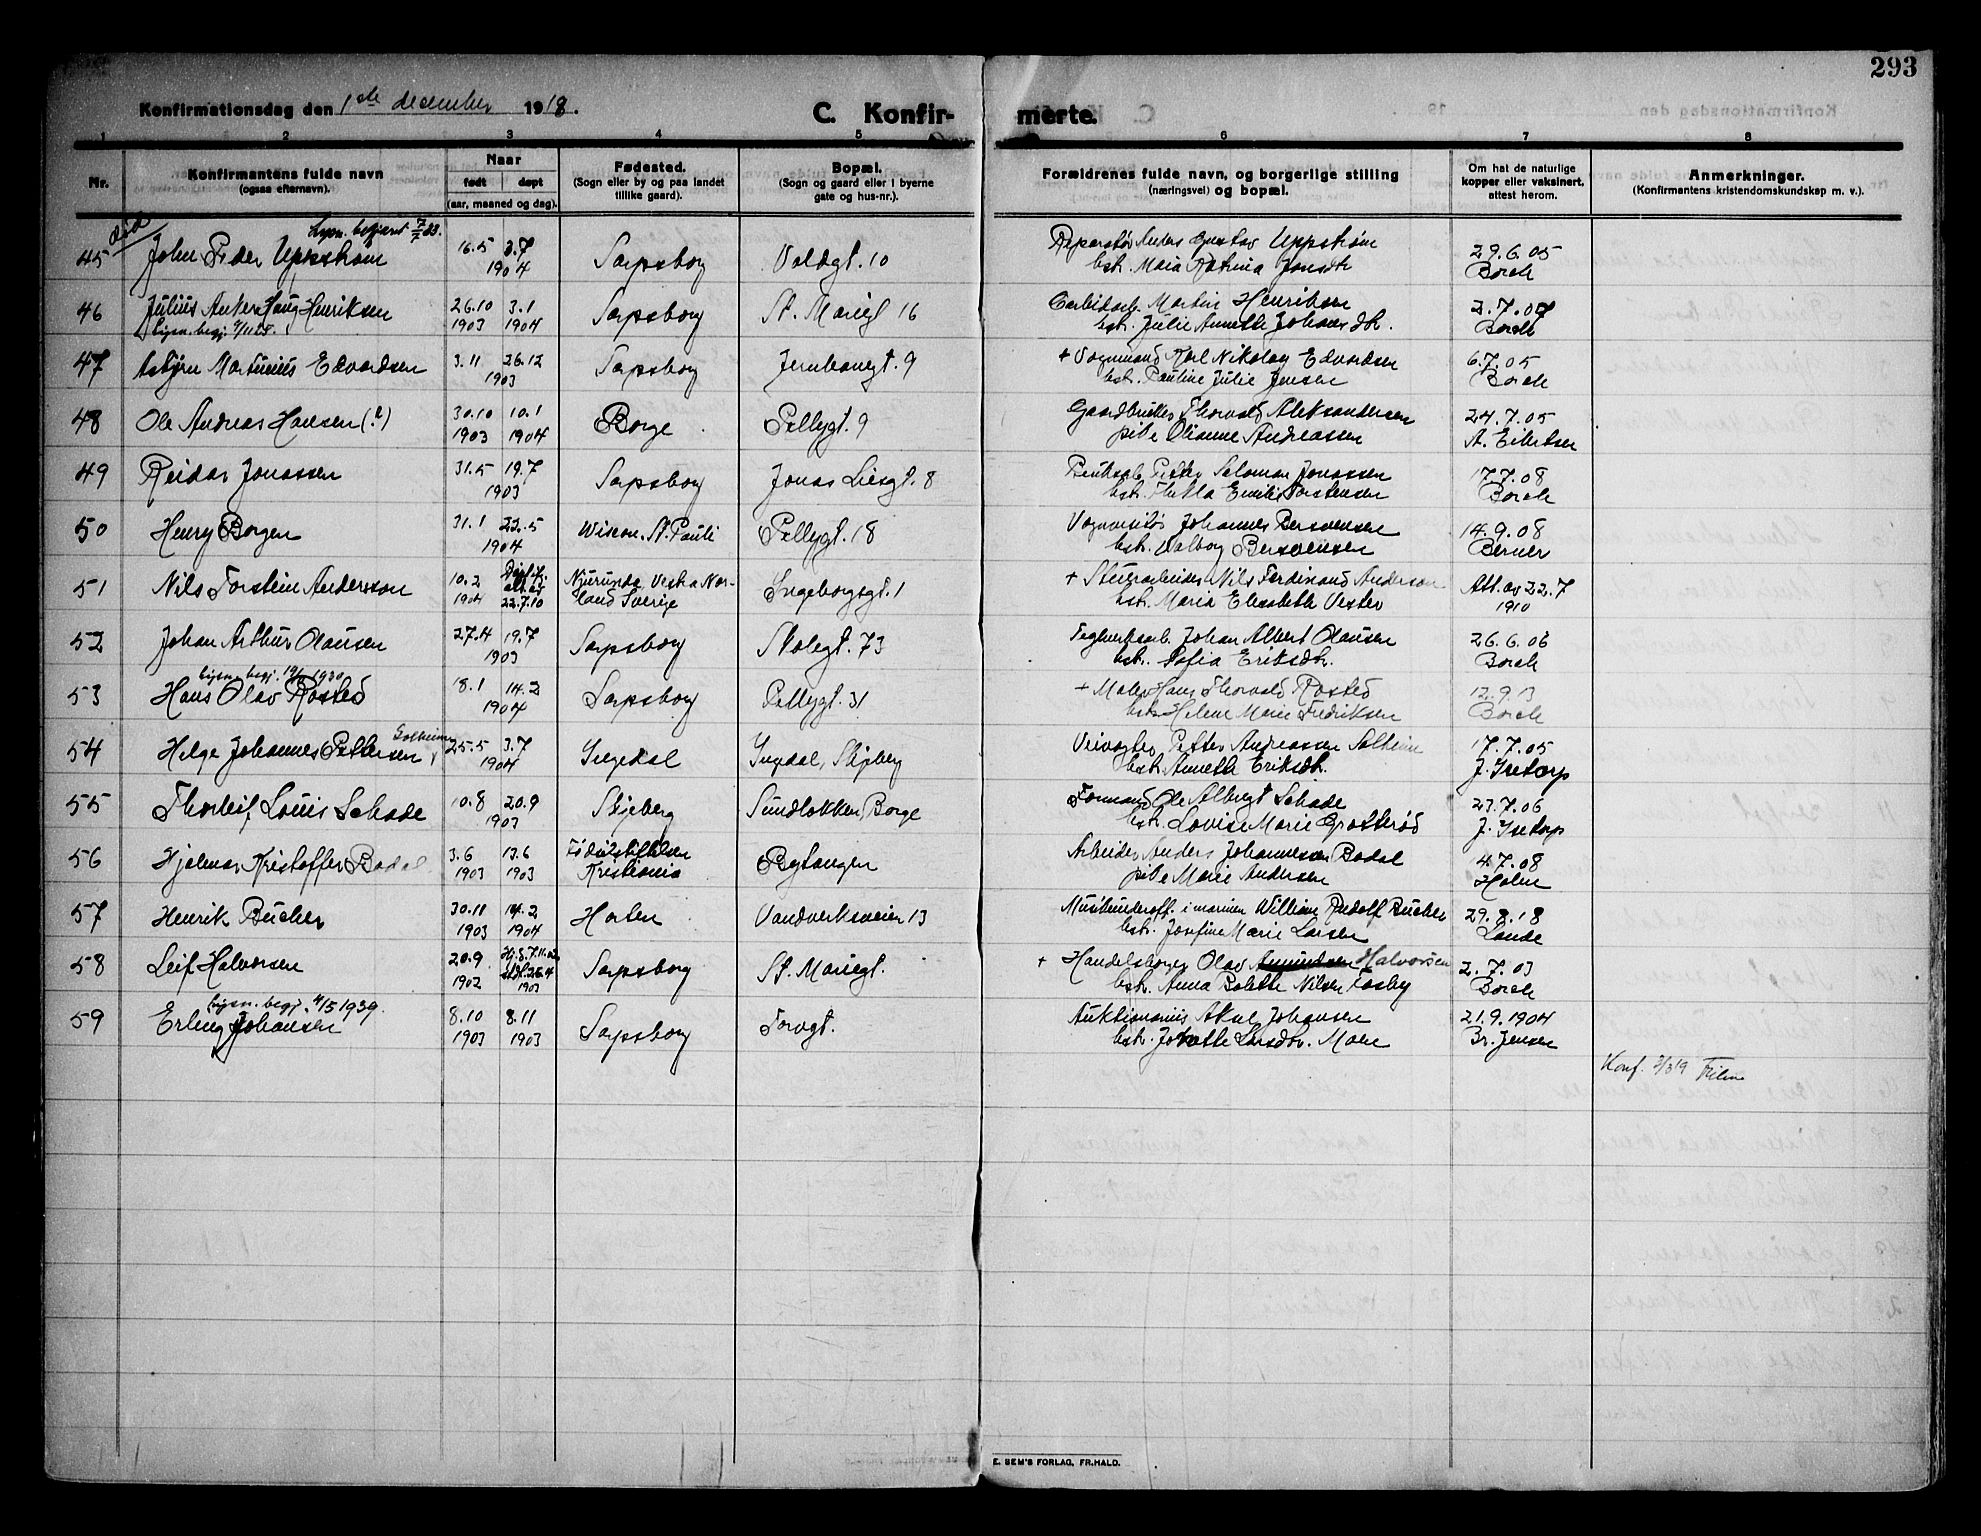 293
Konfirmationsdag den 1ste december 1918.
C. Konfirmerte.
1 2 3 4 5 6 7 8
Nr.
Konfirmantens fulde navn
(ogsaa efternavn).
Naar
født døpt
(aar, maaned og dag).
Fødested.
(Sogn eller by og paa landet
tillike gaard).
Bopæl.
(Sogn og gaard eller i byerne
gate og hus-nr.).
Forældrenes fulde navn, og borgerlige stilling
(næringsvei) og bopæl.
Om hat de naturlige
kopper eller vaksinert,
attest herom.
Anmerkninger.
(Konfirmantens kristendomskundskap m. v.).
død
45 John Peder Uppstrøm 16.5 3.7 1904 Sarpsborg Voldgt. 10 Anders Gustav Uppstrøm 29.6.05
hstr. Maria Katrina Borch
46 Julius Anker Haug Henriksen 26.10 1903 3.1 1904 Sarpsborg St. Mariegt 16 Martin Henriksen 2.7.07
hstr. Julie Annette Johansdtr. Borch
47 Asbjørn Martinius Edvardsen 3.11 26.12 1903 Sarpsborg Jernbanegt. 9 + Vognmand Karl Nikolay Edvardsen 6.7.05
hstr. Pauline Julie Jensen Borch
48 Ole Andreas Hansen (!) 30.10 1903 10.1 1904 Borge Pellygt. 9 Gaardbruker Thorvald Aleksandersen 24.7.05
pike Olianne Andreassen A. Eilertsen
49 Reidar Jonassen 31.5 19.7 1903 Sarpsborg Jonas Liesgt. 8 Petter Salomon Jonassen 17.7.08
hstr. Thekla Emilie Torstensen Borch
50 Henry Borgen 31.1 22.5 1904 Wiscon. St. Pauli Pellygt. 18 Johannes Bersvensen 14.9.08
hstr. Valborg Bersvensen Berner
51 Nils Torstein Andersson 10.2 1904 22.7.10 Njurunda Vestra Nor-
land Sverige Ingeborgsgt. 1 + Nils Ferdinand Anderson Att. av 22.7
hstr. Maria Elisabeth Vester 1910
52 Johan Arthur Olausen 27.4 19.7 1903 Sarpsborg Skolegt. 73 Teglverksarb. Johan Albert Olausen 26.6.06
hstr. Sofia Eriksdtr. Borch
lysn. begj. 1930
53 Hans Olav Rosted 18.1 14.2 1904 Sarpsborg Pellygt. 31 + Maler Hans Thorvald Rosted 12.9.13
hstr. Helene Marie Fredriksen Borch
Solheim
54 Helge Johannes Pettersen 25.5 3.7 1904 Ingedal Ingdal, Skjeberg Veivogter Petter Andreassen Solheim 17.7.05
hstr. Annette Eriksdtr. J. Tretorp
55 Thorleif Louis Schade 10.8 20.9 1903 Skjeberg Sundløkken, Borge Formand Ole Albregt Schade 27.7.06
hstr. Lovise Marie Grøtterød J. Tretorp
56 Hjalmar Kristoffer Bodal 3.6 1903 13.6 1903 Fødselsstiftelsen
Kristiania Bytangen Arbeider Anders Johannessen Bodal 4.7.08
pike Marie Andersen Holm
57 Henrik Bücher 30.11 1903 14.2 1904 Horten Vandverksveien 13 Musikunderoff. i marinen William Rudolf Bücher 29.8.18
hstr. Josefine Marie Larsen Lande
58 Leif Halvorsen 20.9 1902 Hj.d. 7.11.02 stdf. 26.4 1903 Sarpsborg St. Mariegt. + Handelsborger Olav Halvorsen 2.7.03
hstr. Anna Bolette Nilsen Fosby Borch
lysn. begj. 4/5 1939.
59 Erling Johansen 8.10 1903 8.11 1903 Sarpsborg Torvgt. Auktionarius Aksel Johansen 21.9.1904
hstr. Larsdtr. Moen Br. Jensen
Konf. 2/3 19
E. SEM'S FORLAG, FR.HALD.